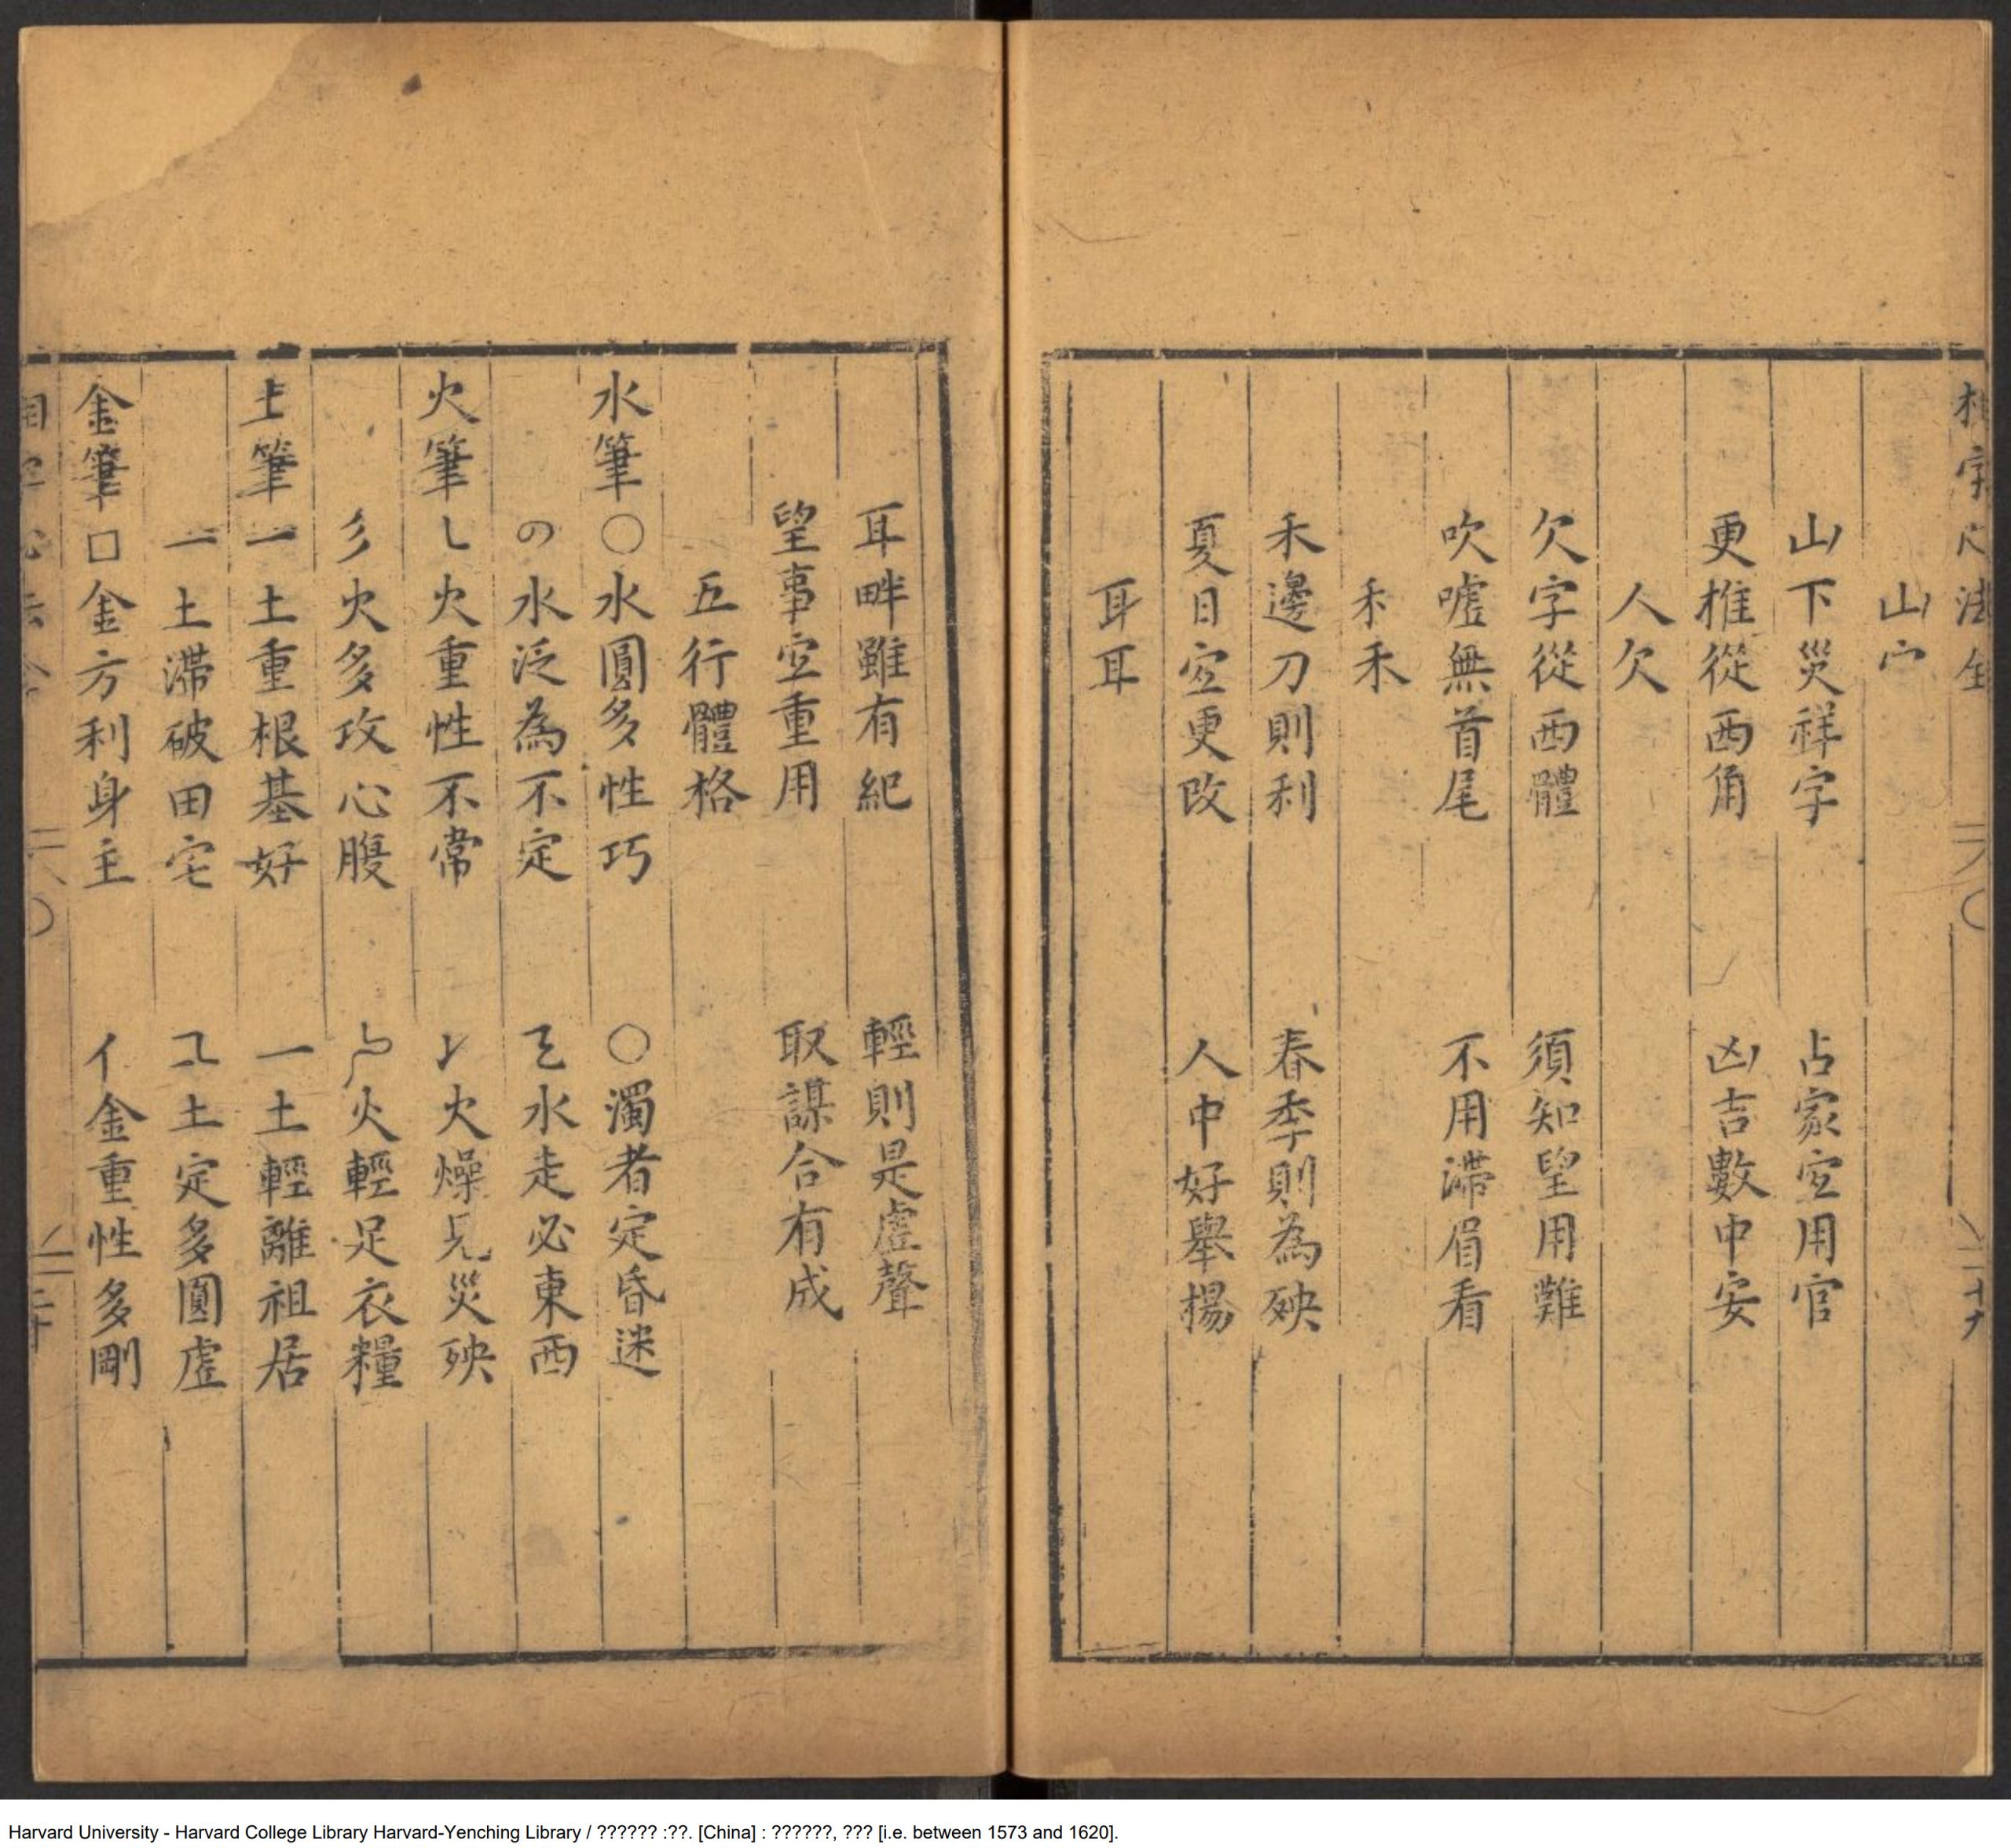 山宀
山下災祥字 占家宐用官
更推從西角 凶吉數中安
人欠
欠字從西體 須知望用難
吹噓無首尾 不用滯眉看
禾禾
禾邊刀則利 春季則為殃
夏日宐更改 人中好舉揚
耳耳
耳畔雖有紀 輕則是虛聲
望事宐重用 取謀合有成
五行體格
水筆〇水圓多性巧 〇濁者定昏迷
水泛為不定 水走必東西
火筆乚火重性不常 火燥見災殃
彡火多攻心腹 火輕足衣糧
土筆一土重根基好 一土輕離祖居
一土滯破田宅 土定多圓虛
金筆口金方利身主 亻金重性多剛
Harvard University - Harvard College Library Harvard-Yenching Library / ?????? :??. [China] : ??????, ??? [i.e. between 1573 and 1620].